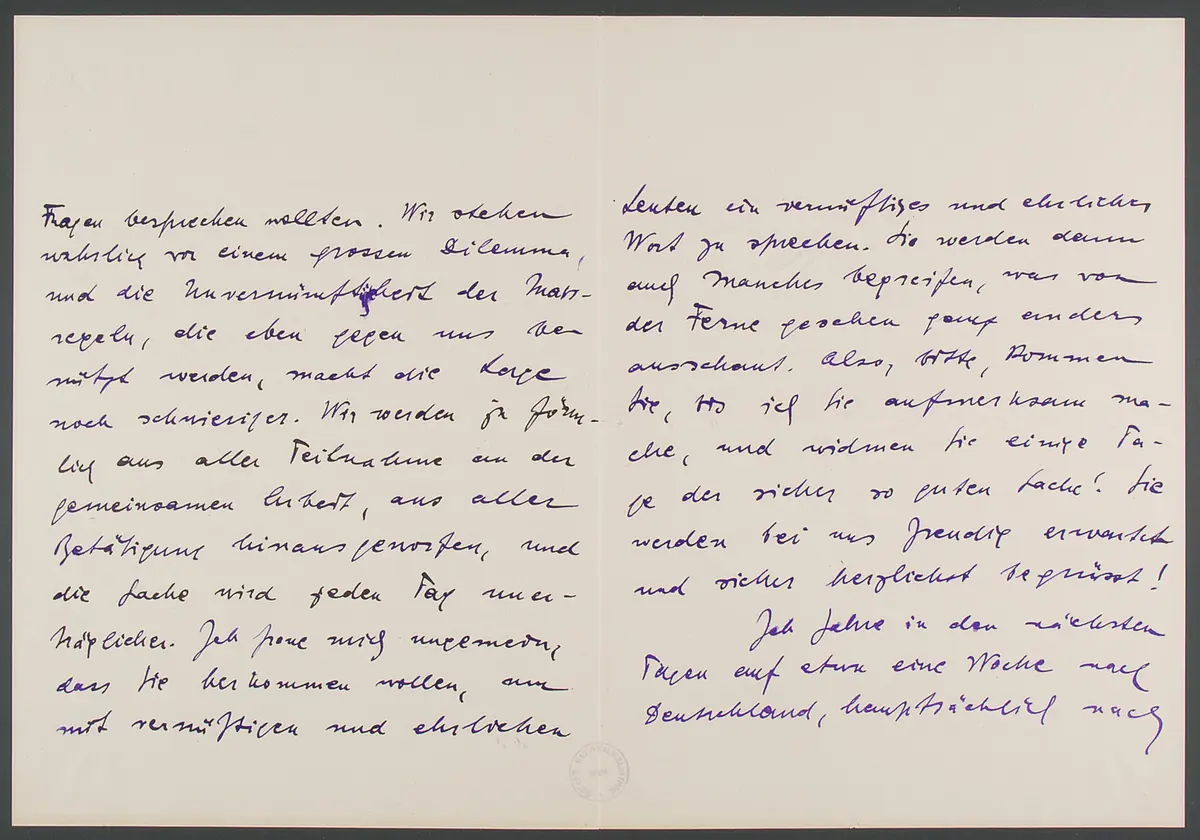 Fragen besprechen wollten. Wir stehen
wahrlich vor einem grossen Dilemma,
und die Unvernünftigkeit der Mass-
regeln, die eben gegen uns be-
nützt werden, macht die Lage
noch schwieriger. Wir werden ja förm-
lich aus aller Teilnahme an der
gemeinsamen Arbeit, aus aller
Betätigung hinausgeworfen, und
die Sache wird jeden Tag uner-
träglicher. Ich freue mich ungemein,
dass Sie herkommen wollen, um
mit vernünftigen und ehrlichen
Leuten ein vernünftiges und ehrliches
Wort zu sprechen. Sie werden dann
auch Manches begreifen, was von
der Ferne gesehen ganz anders
ausschaut. Also, bitte, kommen
Sie, bis ich Sie aufmerksam ma-
che, und widmen Sie einige Ta-
ge der sicher so guten Sache! Sie
werden bei uns freudig erwartet
und sicher herzlichst begrüsst!
Ich fahre in den nächsten
Tagen auf etwa eine Woche nach
Deutschland, hauptsächlich nach